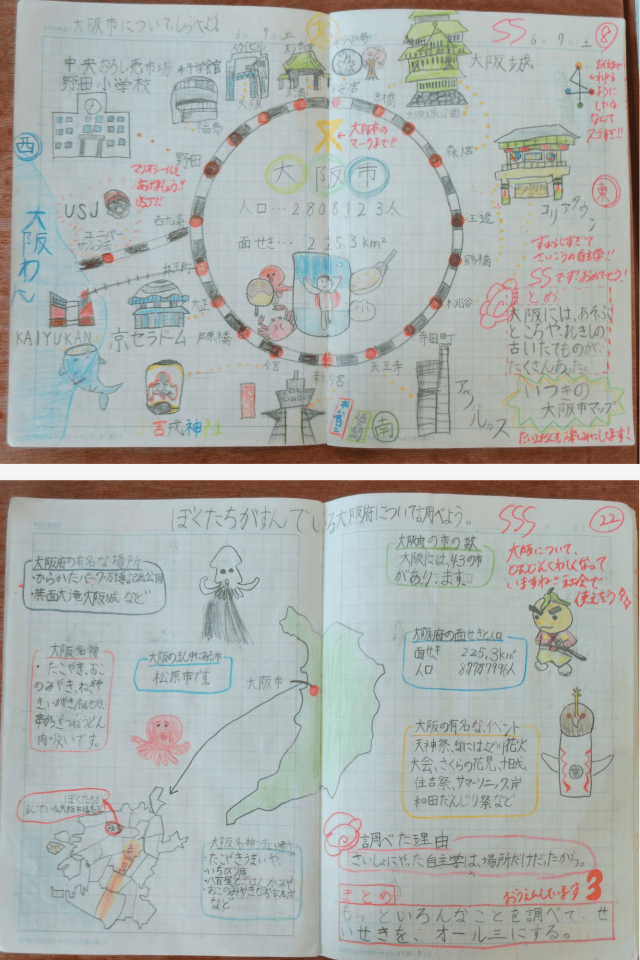 大阪市についてしらべよう。
6 7 土
SS
6 7 土
8
中央おろし売市場
野田小学校
福島
大阪
天満
桜宮
京橋
大阪城
大阪城公園
森ノ宮
大阪市の
マークまで!!
大阪市
人口…2808123人
面せき…225.3km²
野田
西九条
西
大阪わん
USJ
ユニバー
サルシティ
弁天町
大正
芦原橋
今宮
新今宮
天王寺
寺田町
桃谷
鶴橋
玉造
東
コリアタウン
すばらしすぎて
さいこうの自主学!!
SSです!おめでとう!
まとめ
大阪には、あそぶ
ところやれきしの
古いたてものが、
たくさんあった。
いつきの
大阪市マップ
KAIYUKAN
京セラドーム
南
ぼくたちがすんでいる大阪府について調べよう。
SSS
22
大阪府の有名な場所
・ひらかたパーク・万博記念公園
・箕面大滝大阪城 など
大阪府の市の数
大阪には、43の市
があります。
大阪について、
どんどんくわしくなって
いますね!!社会で
使えそう
大阪名物
・たこやき、おこ
のみやき、ねぎや
き、いかやき、
串かつ、きつねうどん
肉吸いです。
大阪のまん中にある市
松原市です
大阪市
大阪府の面せきと人口
面せき 225.3km²
人口
大阪の有名な、イベント
花火
大会、さくらの花見、十日戎、
住吉祭、サマーソニック、岸
和田だんじり祭など
・たこやきうまいや
・いちびり庵
など
調べた理由
さいしょにやった自主学は、場所だけだったから。
まとめ
おうえんしています
もっといろんなことを調べて、せ
いせきを、オール三にする。